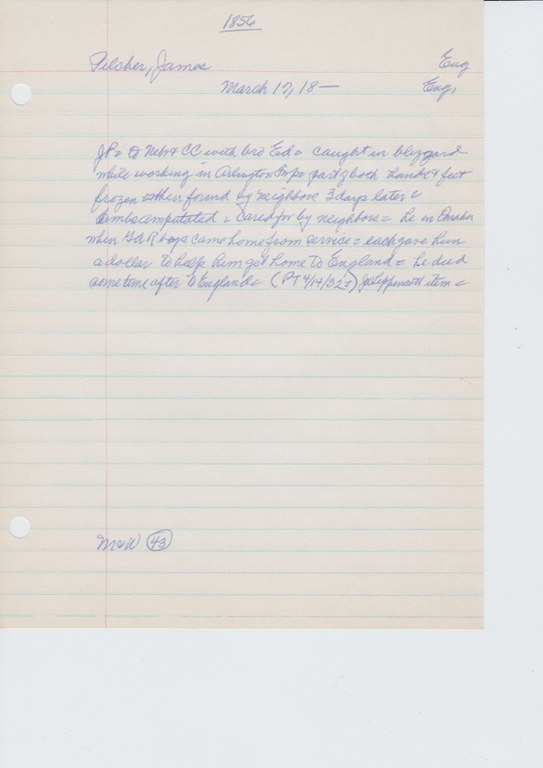 1856
Pilcher, James Eng
March 17, 18— Eng,
JP = to Nebr & CC with bro Ed = caught in blizzard
while working in Arlington part of both hands & feet
frozen when found by neighbors 3 days later =
limbs amputated = cared for by neighbors = he in Omaha
when GAR boys came home from service = each gave him
a dollar to help him get home to England = he died
sometime after to England = (PT 4/14/32) item =
43